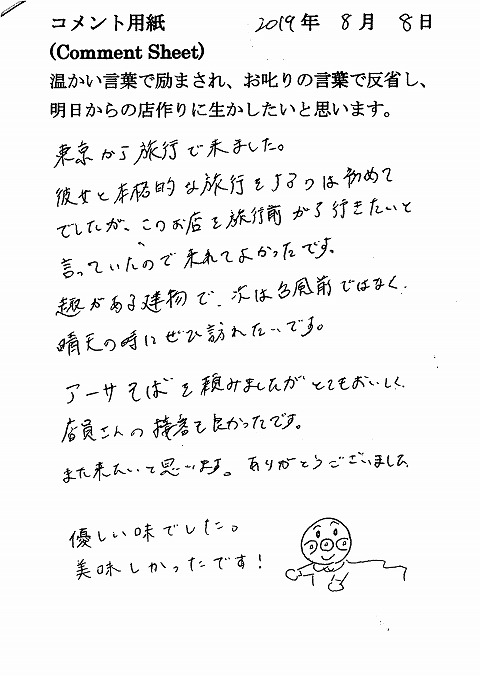 コメント用紙 2019年 8月 8日
(Comment Sheet)
温かい言葉で励まされ、お叱りの言葉で反省し、
明日からの店作りに生かしたいと思います。
東京から旅行で来ました。
彼女と本格的な旅行をするのは初めて
でしたが、このお店を旅行前から行きたいと
言っていたので来れてよかったです。
趣がある建物で、次は台風前ではなく、
晴天の時にぜひ訪れたいです。
アーサそばを頼みましたがとてもおいしく、
店員さんの接客も良かったです。
また来たいと思います。ありがとうございました
優しい味でした。
美味しかったです!